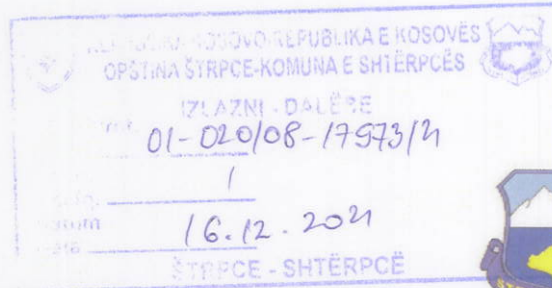 REPUBLIKA KOSOVO-REPUBLIKA E KOSOVËS
OPŠTINA ŠTRPCE-KOMUNA E SHTËRPCËS
IZLAZNI - DALËSE
01-020/08-17973/21
1
16.12.2021
ŠTRPCE - SHTËRPCË